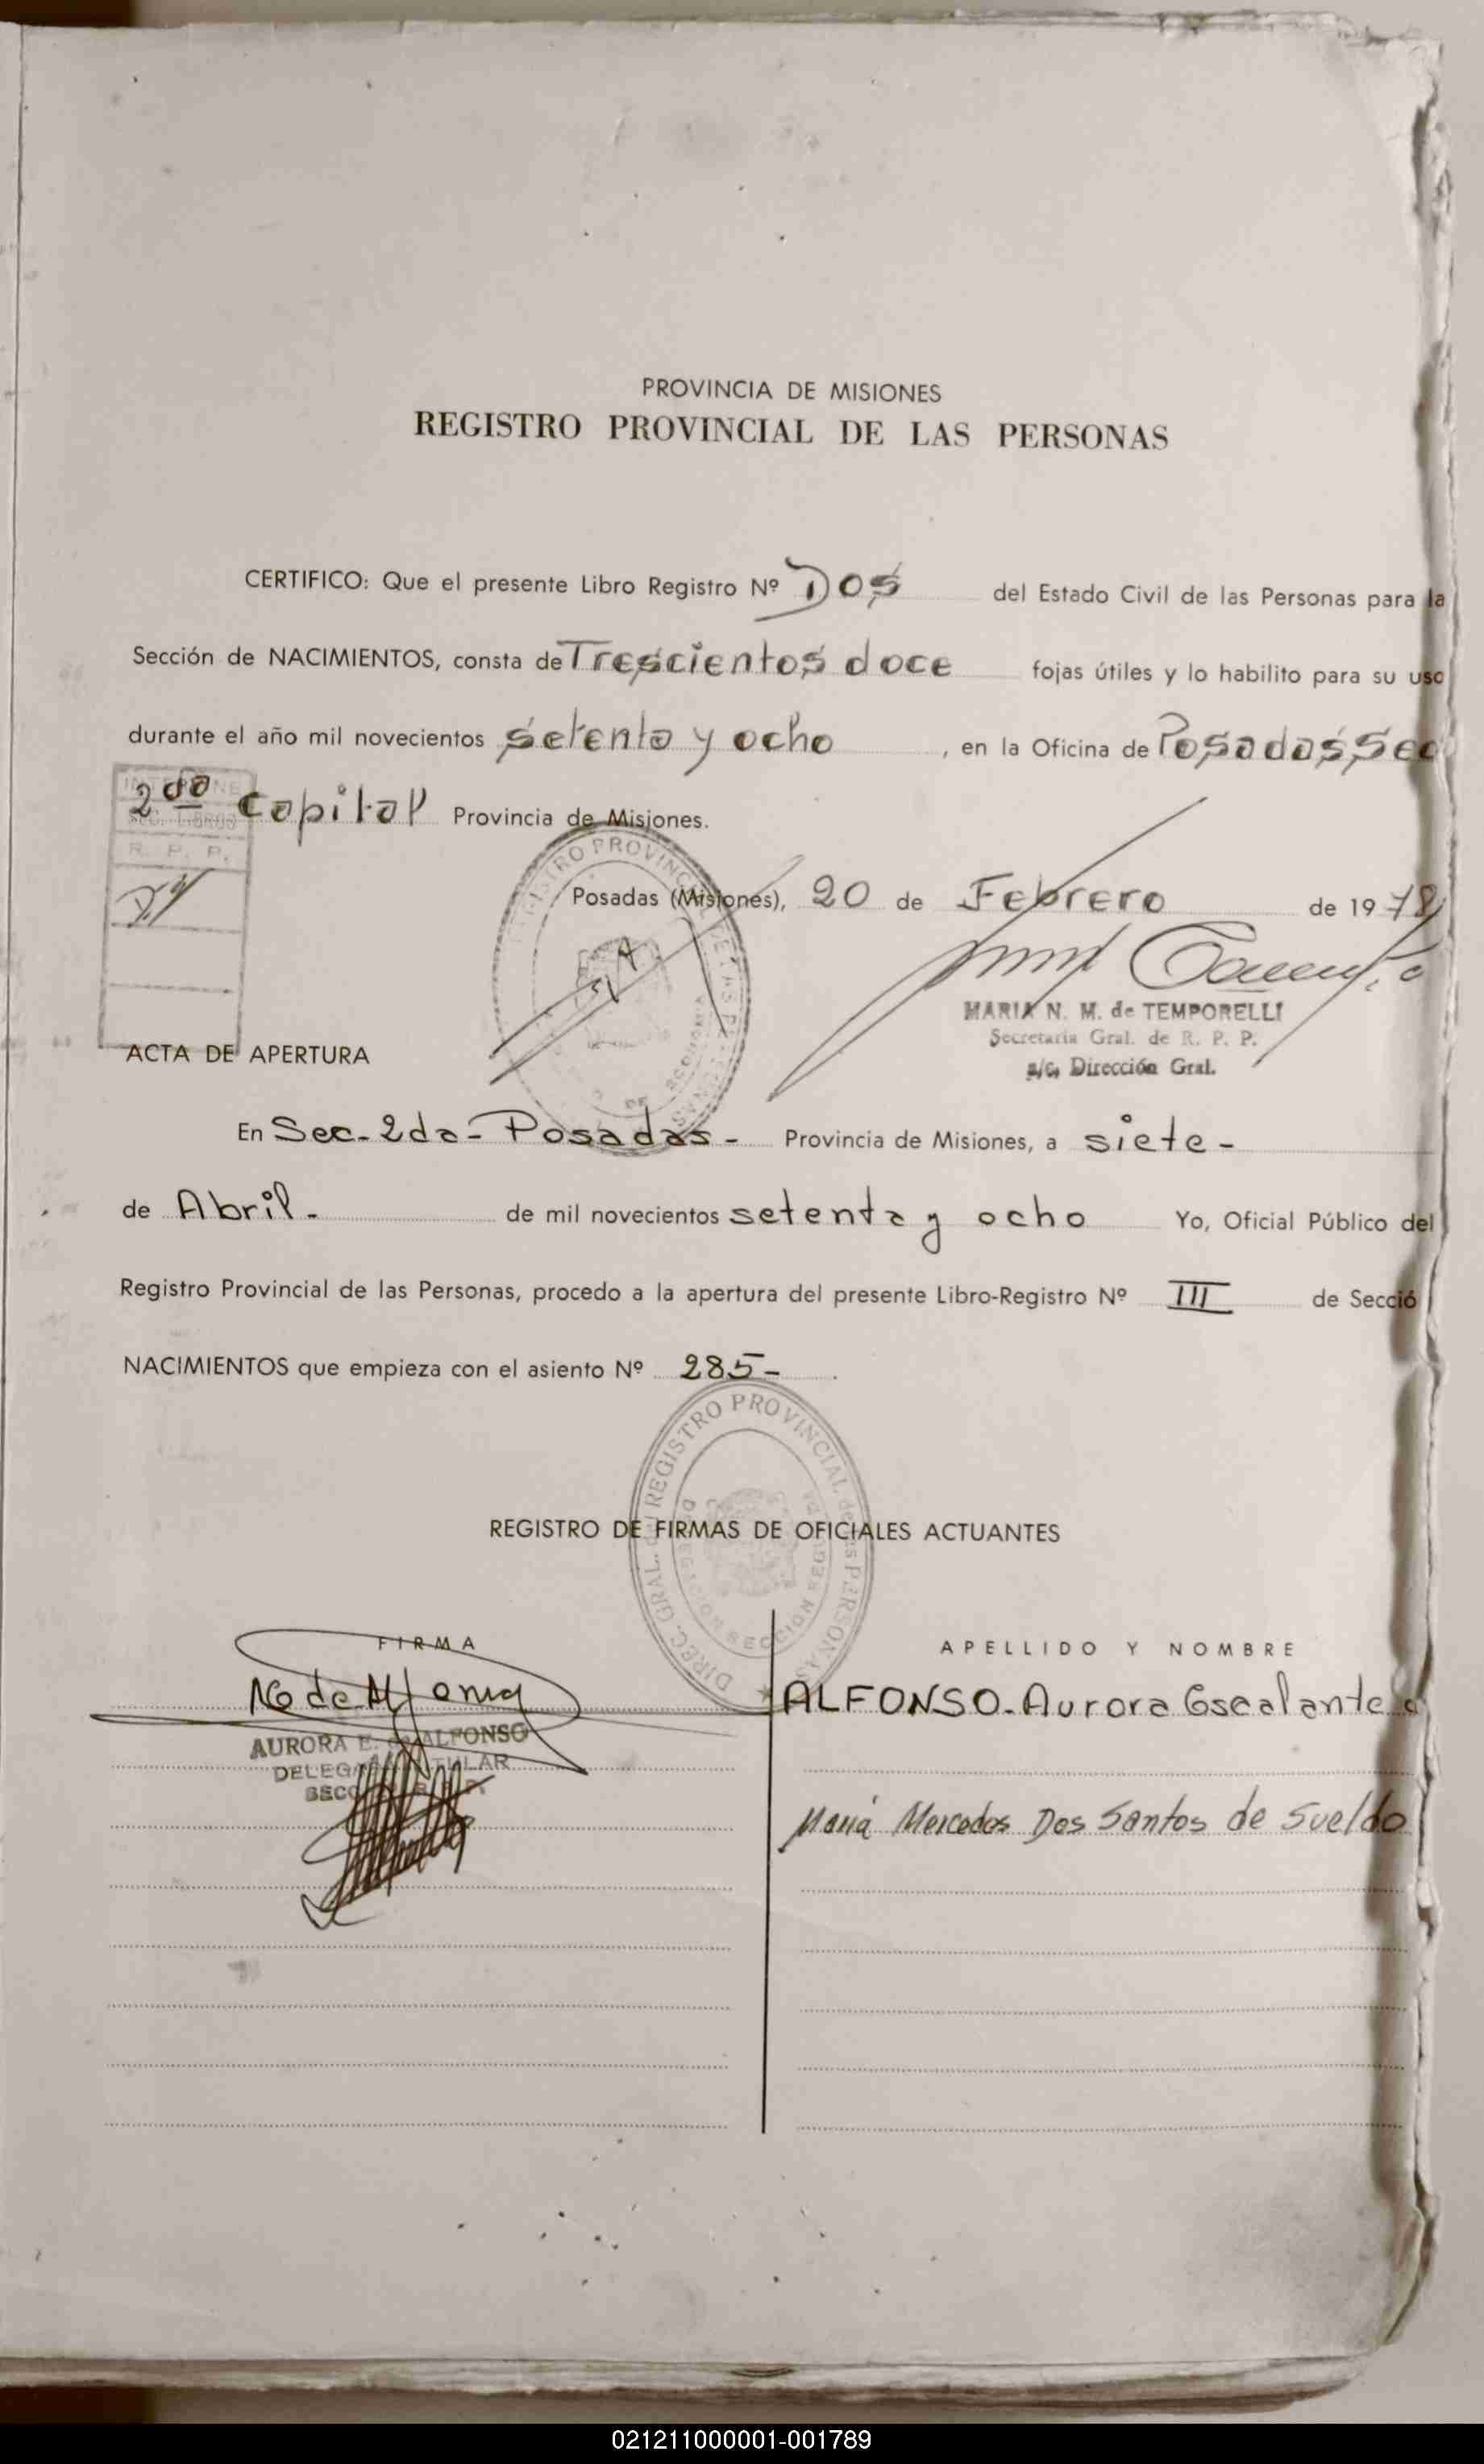 PROVINCIA DE MISIONES
REGISTRO PROVINCIAL DE LAS PERSONAS
CERTIFICO: Que el presente Libro Registro Nº Dos del Estado Civil de las Personas para la
Sección de NACIMIENTOS, consta de Trescientos doce fojas útiles y lo habilito para su uso
durante el año mil novecientos setenta y ocho, en la Oficina de Posadas Sec
2da Capital Provincia de Misiones.
R. P. P.
Posadas (Misiones), 20 de Febrero de 1978
MARIA N. M. de TEMPORELLI
Secretaria Gral. de R. P. P.
a/c. Dirección Gral.
ACTA DE APERTURA
En Sec. 2da - Posadas - Provincia de Misiones, a siete -
de Abril. de mil novecientos setenta y ocho Yo, Oficial Público del
Registro Provincial de las Personas, procedo a la apertura del presente Libro-Registro Nº III de Secció
NACIMIENTOS que empieza con el asiento Nº 285-.
DIREC. GRAL. del REGISTRO PROVINCIAL de las PERSONAS
REGISTRO DE FIRMAS DE OFICIALES ACTUANTES
FIRMA APELLIDO Y NOMBRE
ALFONSO. Aurora Escalante d
AURORA E. de ALFONSO
DELEGADA TITULAR
Maria Mercedes Dos Santos de Sueldo
021211000001-001789